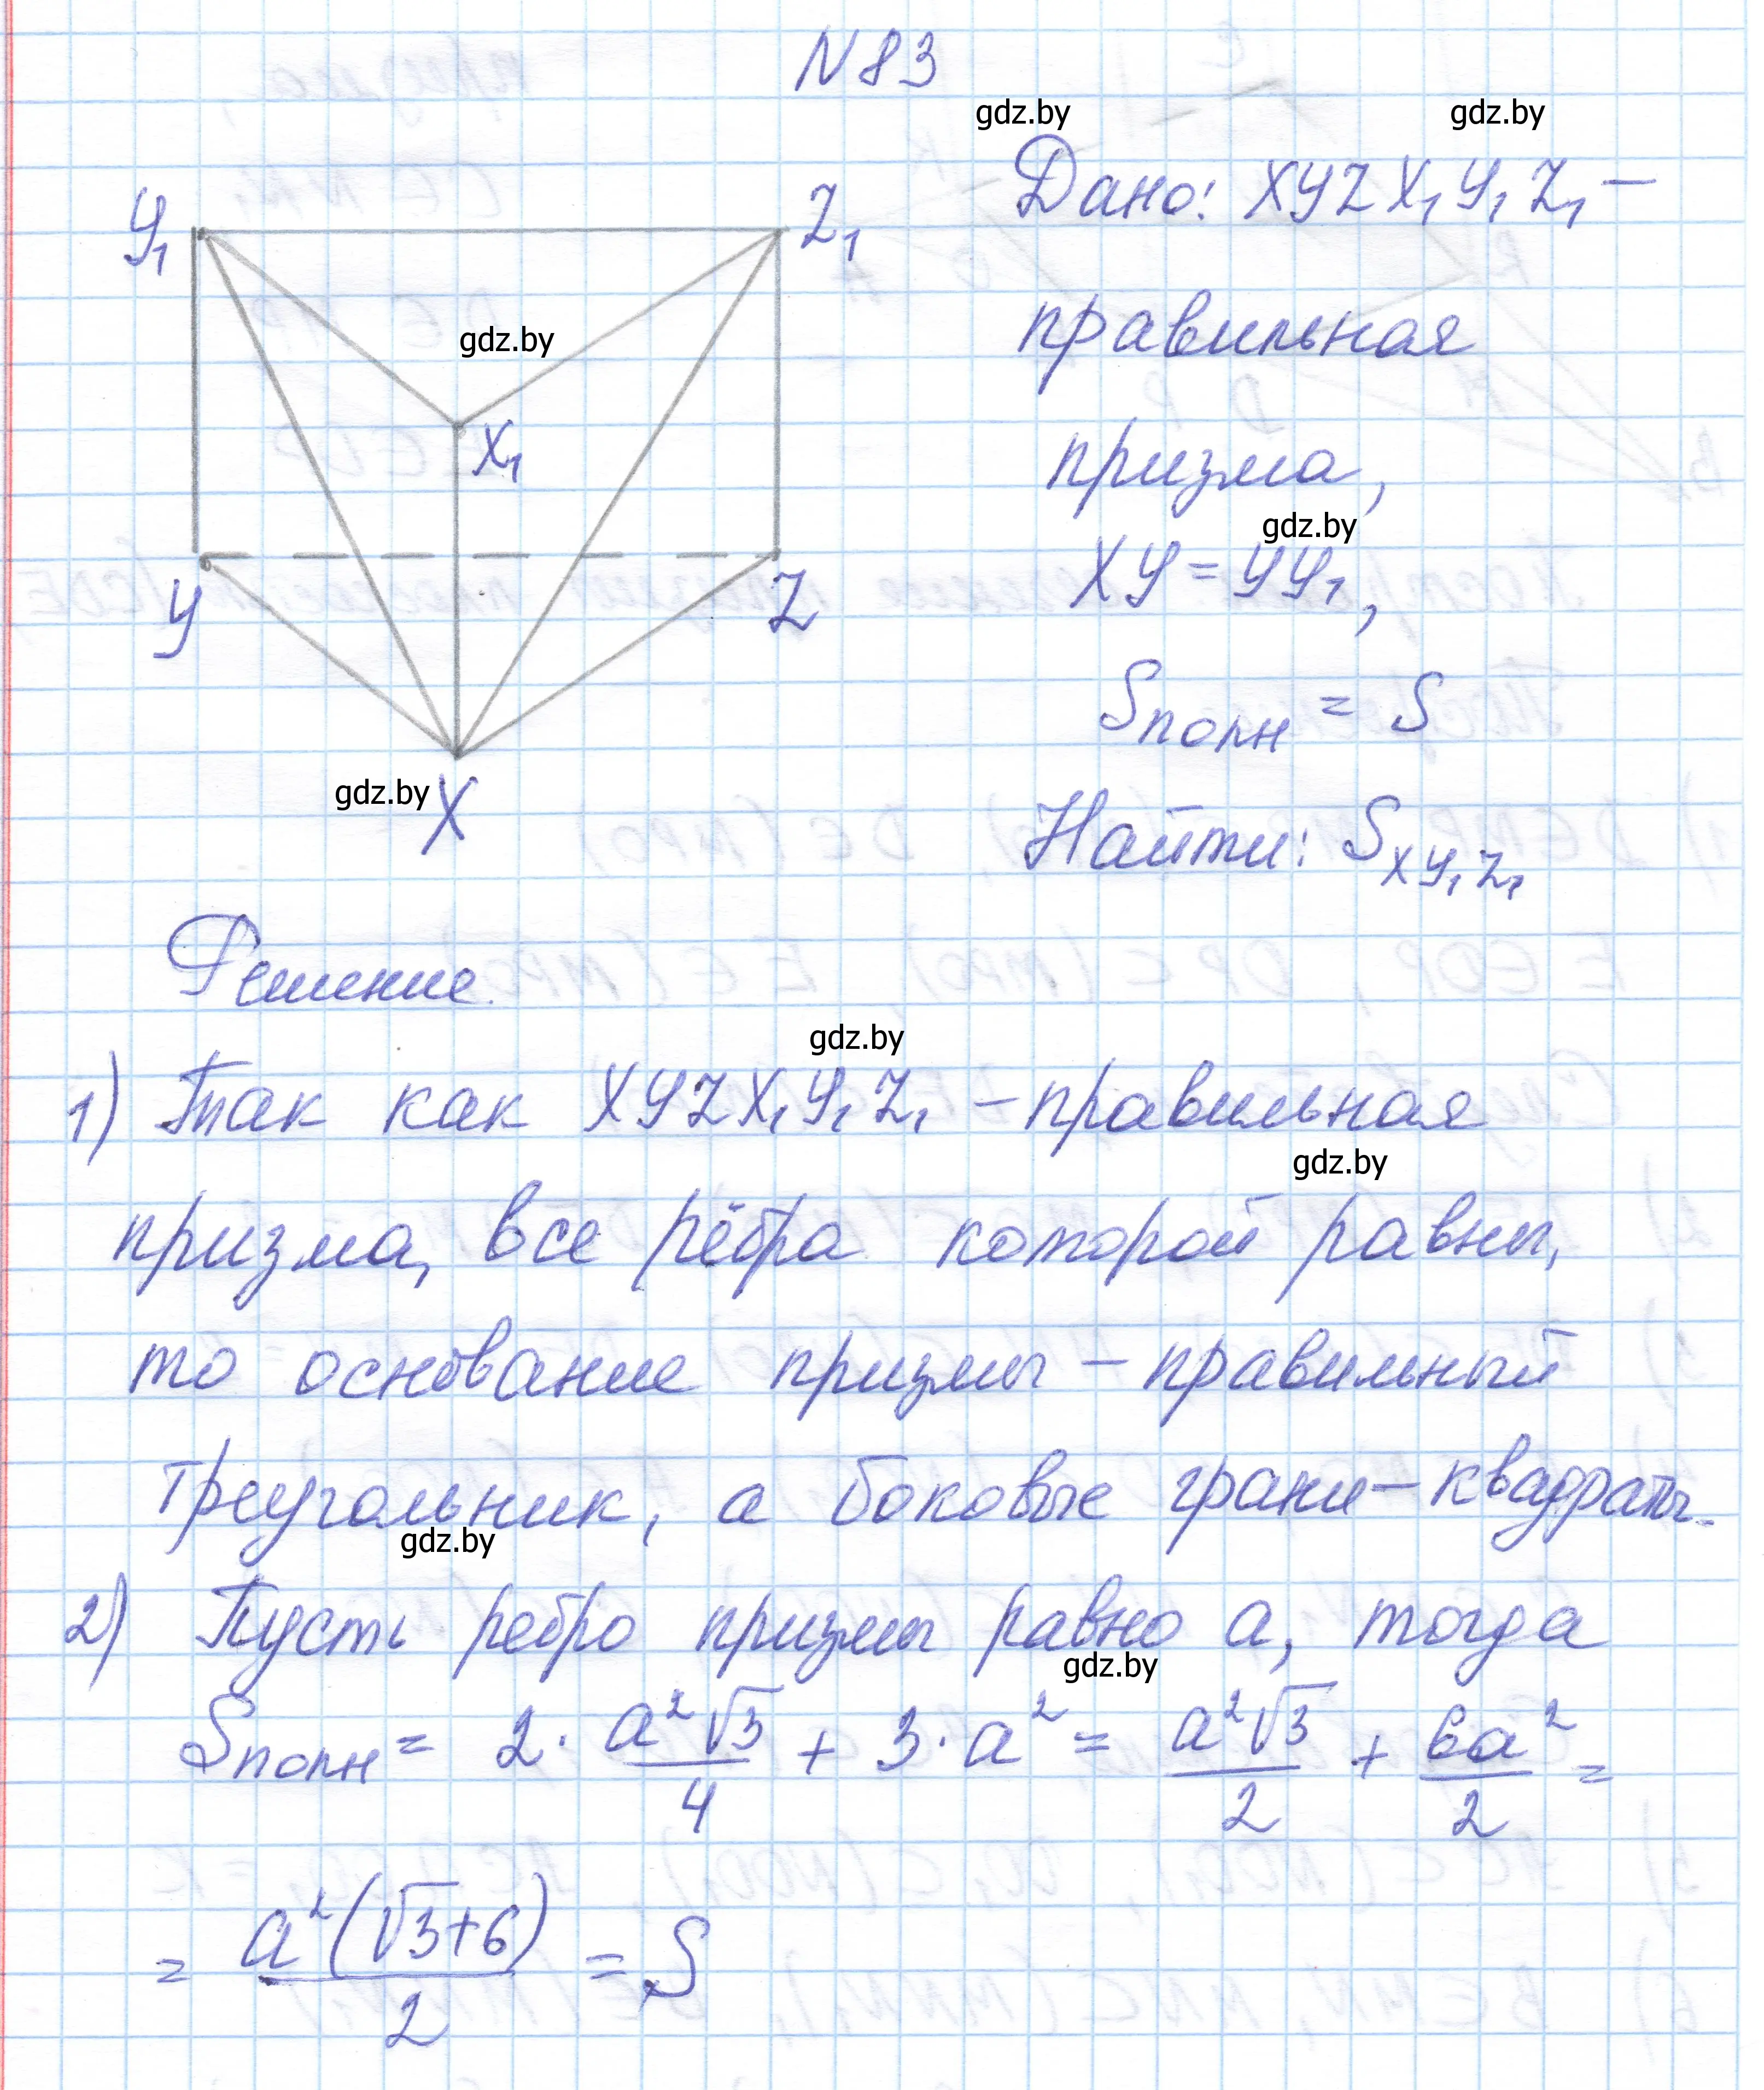 N 83
gdz.by gdz.by
Дано: XYZX₁Y₁Z₁ –
Y₁ Z₁
правильная
gdz.by
X₁
призма,
gdz.by
XY = YY₁,
Y Z
Sполн = S
gdz.by X
Найти: S XY₁Z₁
Решение.
gdz.by
1) Так как XYZX₁Y₁Z₁ – правильная
gdz.by
призма, все рёбра которой равны,
то основание призмы – правильный
треугольник, а боковые грани – квадраты.
gdz.by
2) Пусть ребро призмы равно a, тогда
gdz.by
Sполн = 2 · a²√3/4 + 3 · a² = a²√3/2 + 6a²/2 =
= a²(√3+6)/2 = S